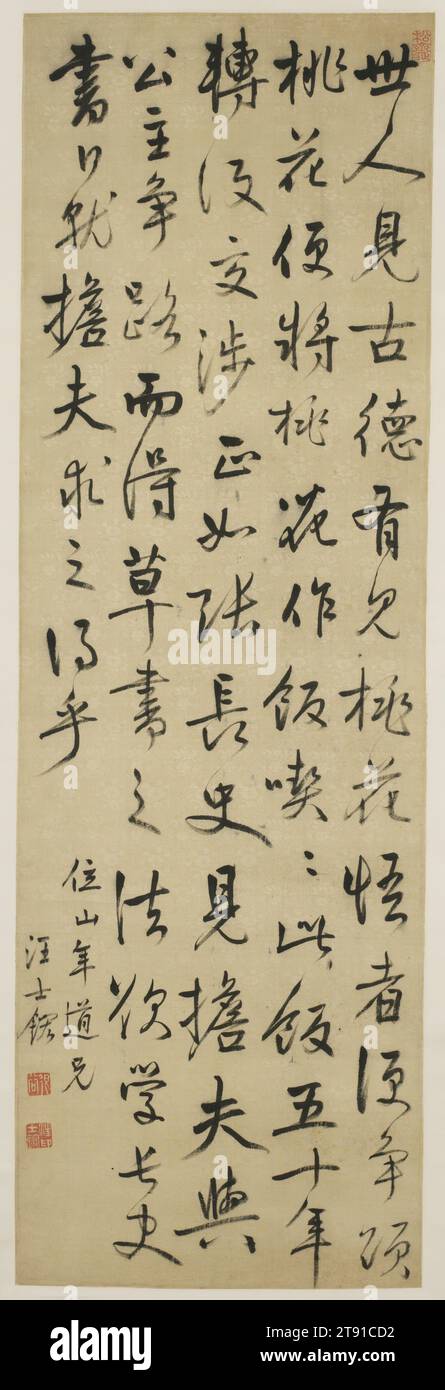 世人見古德有見桃花悟者便爭頌
桃花便將桃花作飯喫〻此飯五十年
轉沒交涉正如張長史見擔夫與
公主爭路而得草書之法欲學長史
書日就擔夫求之得乎
位山年道兄
汪士鋐
alamy
Image ID: 2T91CD2
www.alamy.com